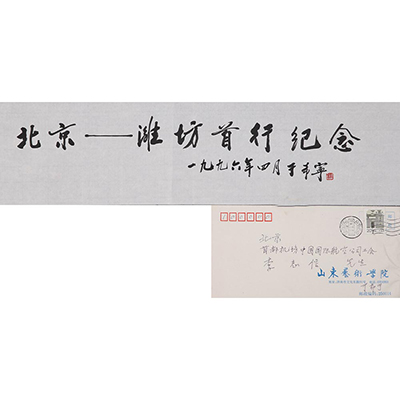 北京——潍坊首行纪念
一九九六年四月于希宁
北京
首都机场中国国际航空公司工会
李 信 先生
山东艺术学院
于希宁